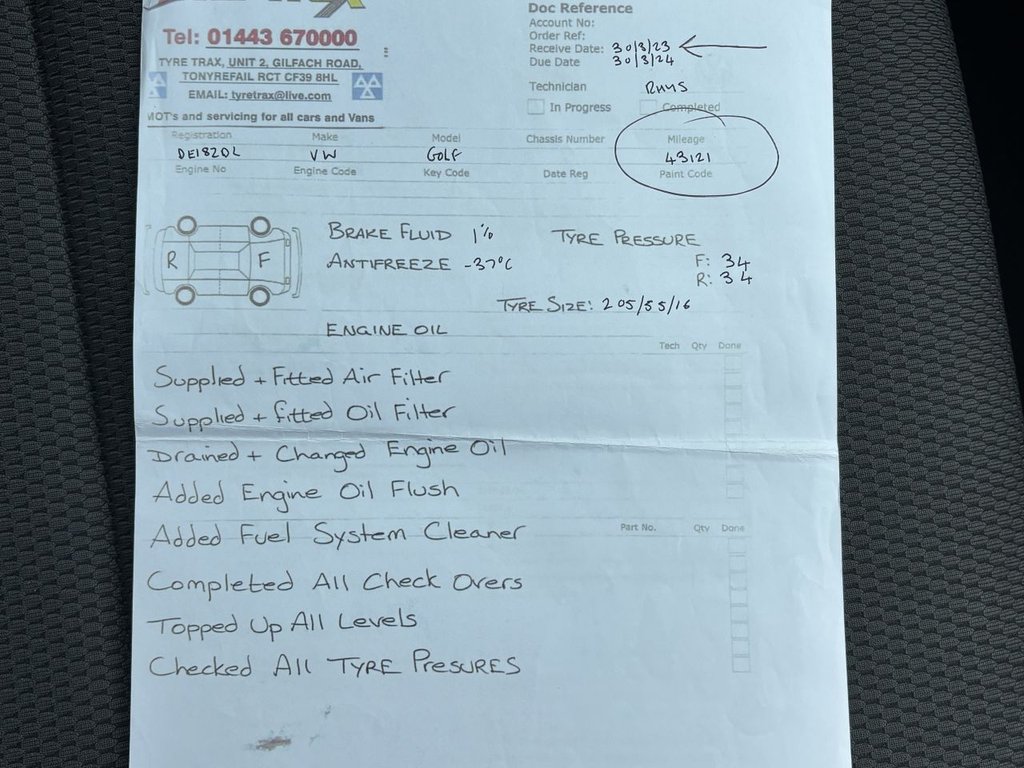 Tel: 01443 670000
TYRE TRAX, UNIT 2, GILFACH ROAD,
TONYREFAIL RCT CF39 8HL
EMAIL: tyretrax@live.com
MOT's and servicing for all cars and Vans
Doc Reference
Account No:
Order Ref:
Receive Date: 30/3/23
Due Date 30/3/24
Technician RHYS
In Progress Completed
Registration Make Model Chassis Number Mileage
DE18ZDL VW GOLF 43121
Engine No Engine Code Key Code Date Reg Paint Code
R F
BRAKE FLUID 1% TYRE PRESSURE
ANTIFREEZE -37°C F: 34
R: 34
TYRE SIZE: 205/55/16
ENGINE OIL
Tech Qty Done
Supplied + Fitted Air Filter
Supplied + fitted Oil Filter
Drained + Changed Engine Oil
Added Engine Oil Flush
Added Fuel System Cleaner
Part No. Qty Done
Completed All Check Overs
Topped Up All Levels
Checked All TYRE PRESURES